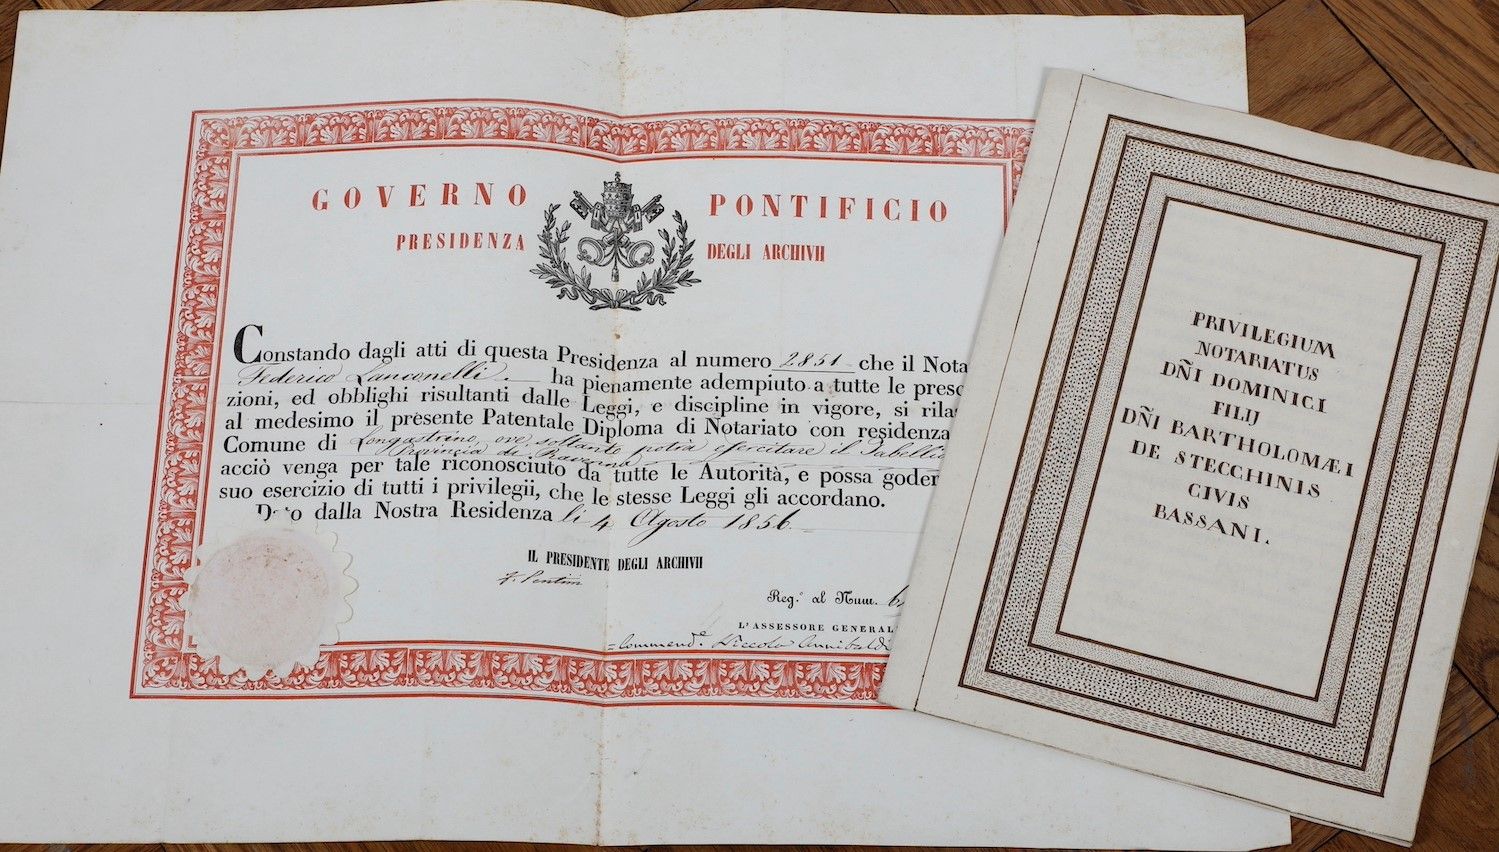 GOVERNO PONTIFICIO
PRESIDENZA DEGLI ARCHIVII
Constando dagli atti di questa Presidenza al numero 2851 che il Nota
Federico Lanconelli. ha pienamente adempiuto a tutte le presc
zioni, ed obblighi risultanti dalle Leggi, e discipline in vigore, si rila
al medesimo il presente Patentale Diploma di Notariato con residenza
Comune di Longastrino, ove soltanto potrà esercitare il Tabelli
Provincia di Ravenna
acciò venga per tale riconosciuto da tutte le Autorità, e possa goder
suo esercizio di tutti i privilegii, che le stesse Leggi gli accordano.
Dato dalla Nostra Residenza li 4 Agosto 1856.
IL PRESIDENTE DEGLI ARCHIVII
Reg.º al Num. 6
L'ASSESSORE GENERAL
Commend.e Niccola Annibaldi
PRIVILEGIUM
NOTARIATUS
DÑI DOMINICI
FILIJ
DÑI BARTHOLOMÆI
DE STECCHINIS
CIVIS
BASSANI.